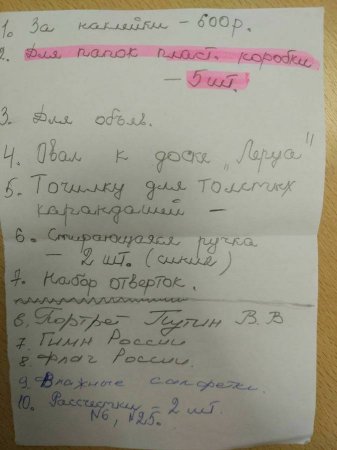 1. За наклейки - 600р.
2. Для папок пласт. коробки
- 5 шт.
3. Для объяв.
4. Овал к доске „Леруа"
5. Точилку для толстых
карандашей -
6. Стирающаяся ручка
- 2 шт. (синие)
7. Набор отверток.
6. Портрет Путин В. В
7 Гимн России
8. Флаг России.
9. Влажные салфетки.
10. Рассчестки - 2 шт.
№6, №25.